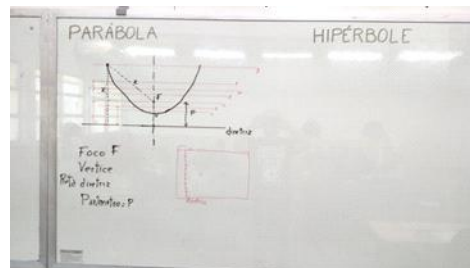 PARÁBOLA
HIPÉRBOLE
x
x
F
P
diretriz
Foco F
Vertice
Reta diretriz
Parâmetro: P